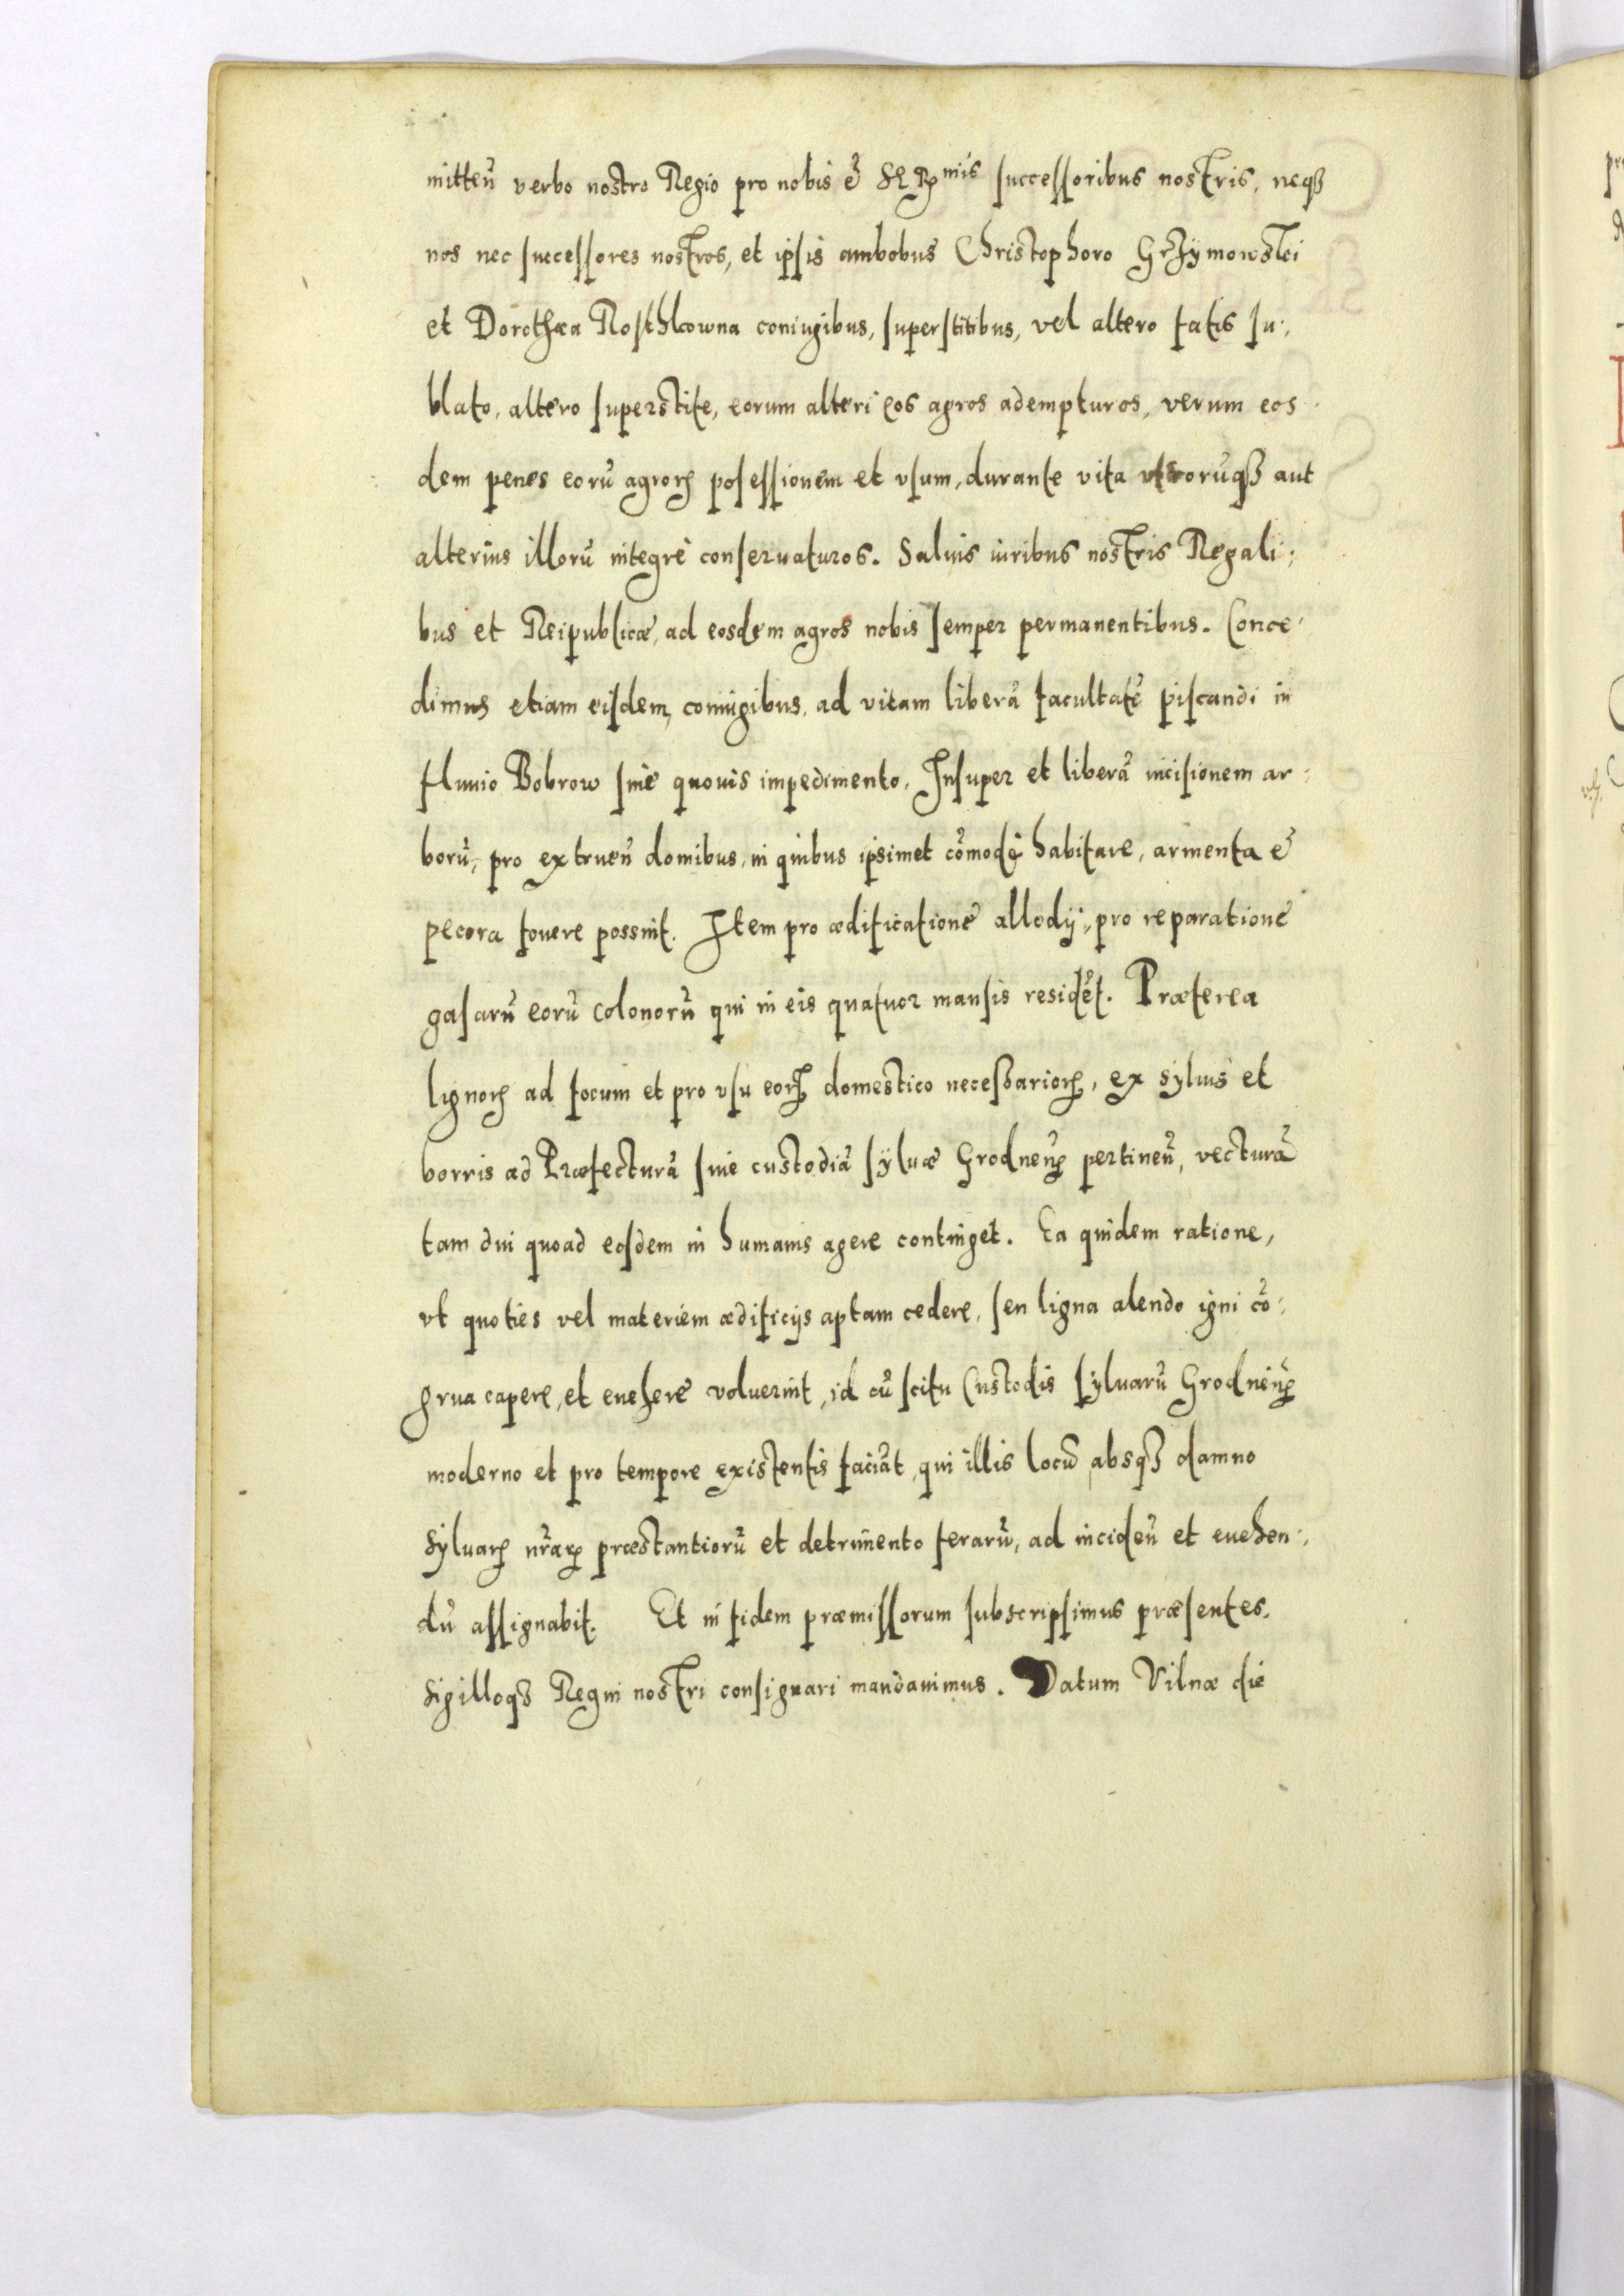 mitteñ verbo nostro Regio pro nobis ẽ successoribus nostris, neqꝫ
nos nec successores nostros, et ipsis ambobus Christophoro Grzÿmowskei
et Dorothæa Rosthkowna coniugibus, superstitibus, vel altero fatis su:
blato, altero superstite, eorum alteri eos agros adempturos, verum eos
dem penes eorũ agroꝝ posessionem et vsum, durante vita vtroruqꝫ aut
alterius illorũ integrè conseruaturos. Saluis iuribus nostris Regali:
bus et Reipublicæ, ad eosdem agros nobis semper permanentibus. Conce:
dimus etiam eisdem coniugibus, ad vitam liberã facultatẽ piscandi in
fluuio Bobrow sine quouis impedimento, Insuper et liberã incisionem ar:
borũ, pro extrueñ domibus, in quibus ipsimet cõmodè habitare, armenta ẽ
pecora fouere possint. Item pro ædificationẽ allodÿ, pro reparationẽ
gasarũ eorũ colonorũ qui in eis quatuor mansis residẽt. Præterea
lignoꝝ ad focum et pro vsu eoꝝ domestico necessarioꝝ, ex syluis et
borris ad Præfecturã siue custodiã sÿluæ Grodneñ pertineñ, vecturã
tam diu quoad eosdem in humanis agere continget. Ea quidem ratione,
vt quoties vel materiem ædificÿs aptam cedere, seu ligna alendo igni cõ:
grua capere, et euehere voluerint, id cũ scitu Custodis sÿluarũ Grodneñ
moderno et pro tempore existentis faciãt, qui illis locũ absqꝫ damno
syluaꝝ nr̃aꝝ præstantiorũ et detrimento ferarũ, ad incideñ et euehen:
dũ assignabit. Et in fidem præmissorum subscripsimus præsentes,
sigilloqꝫ Regni nostri consignari mandauimus. Datum Vilnæ die